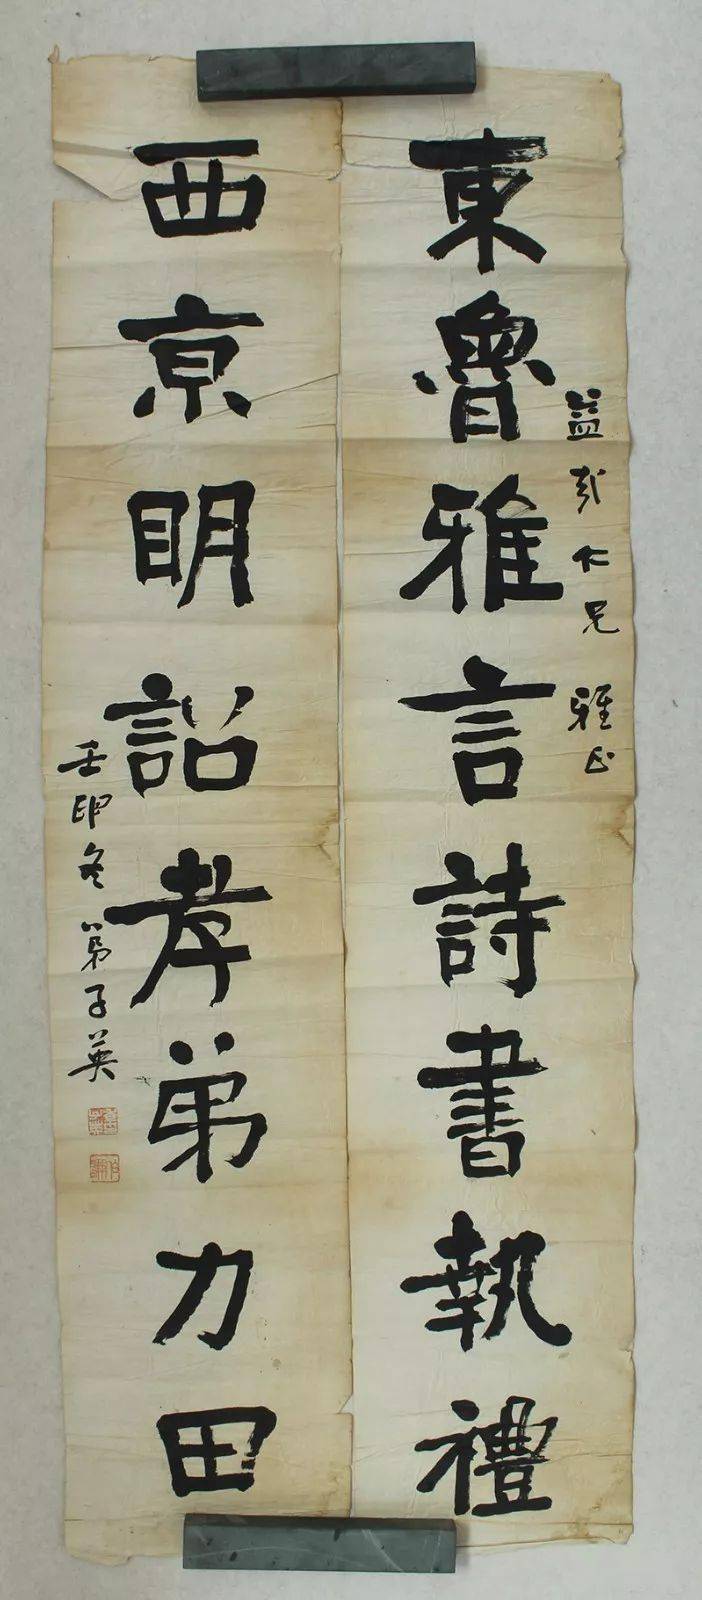 東魯雅言詩書執禮
益彭仁兄 雅正
西京明詔孝弟力田
壬卯冬 弟子英